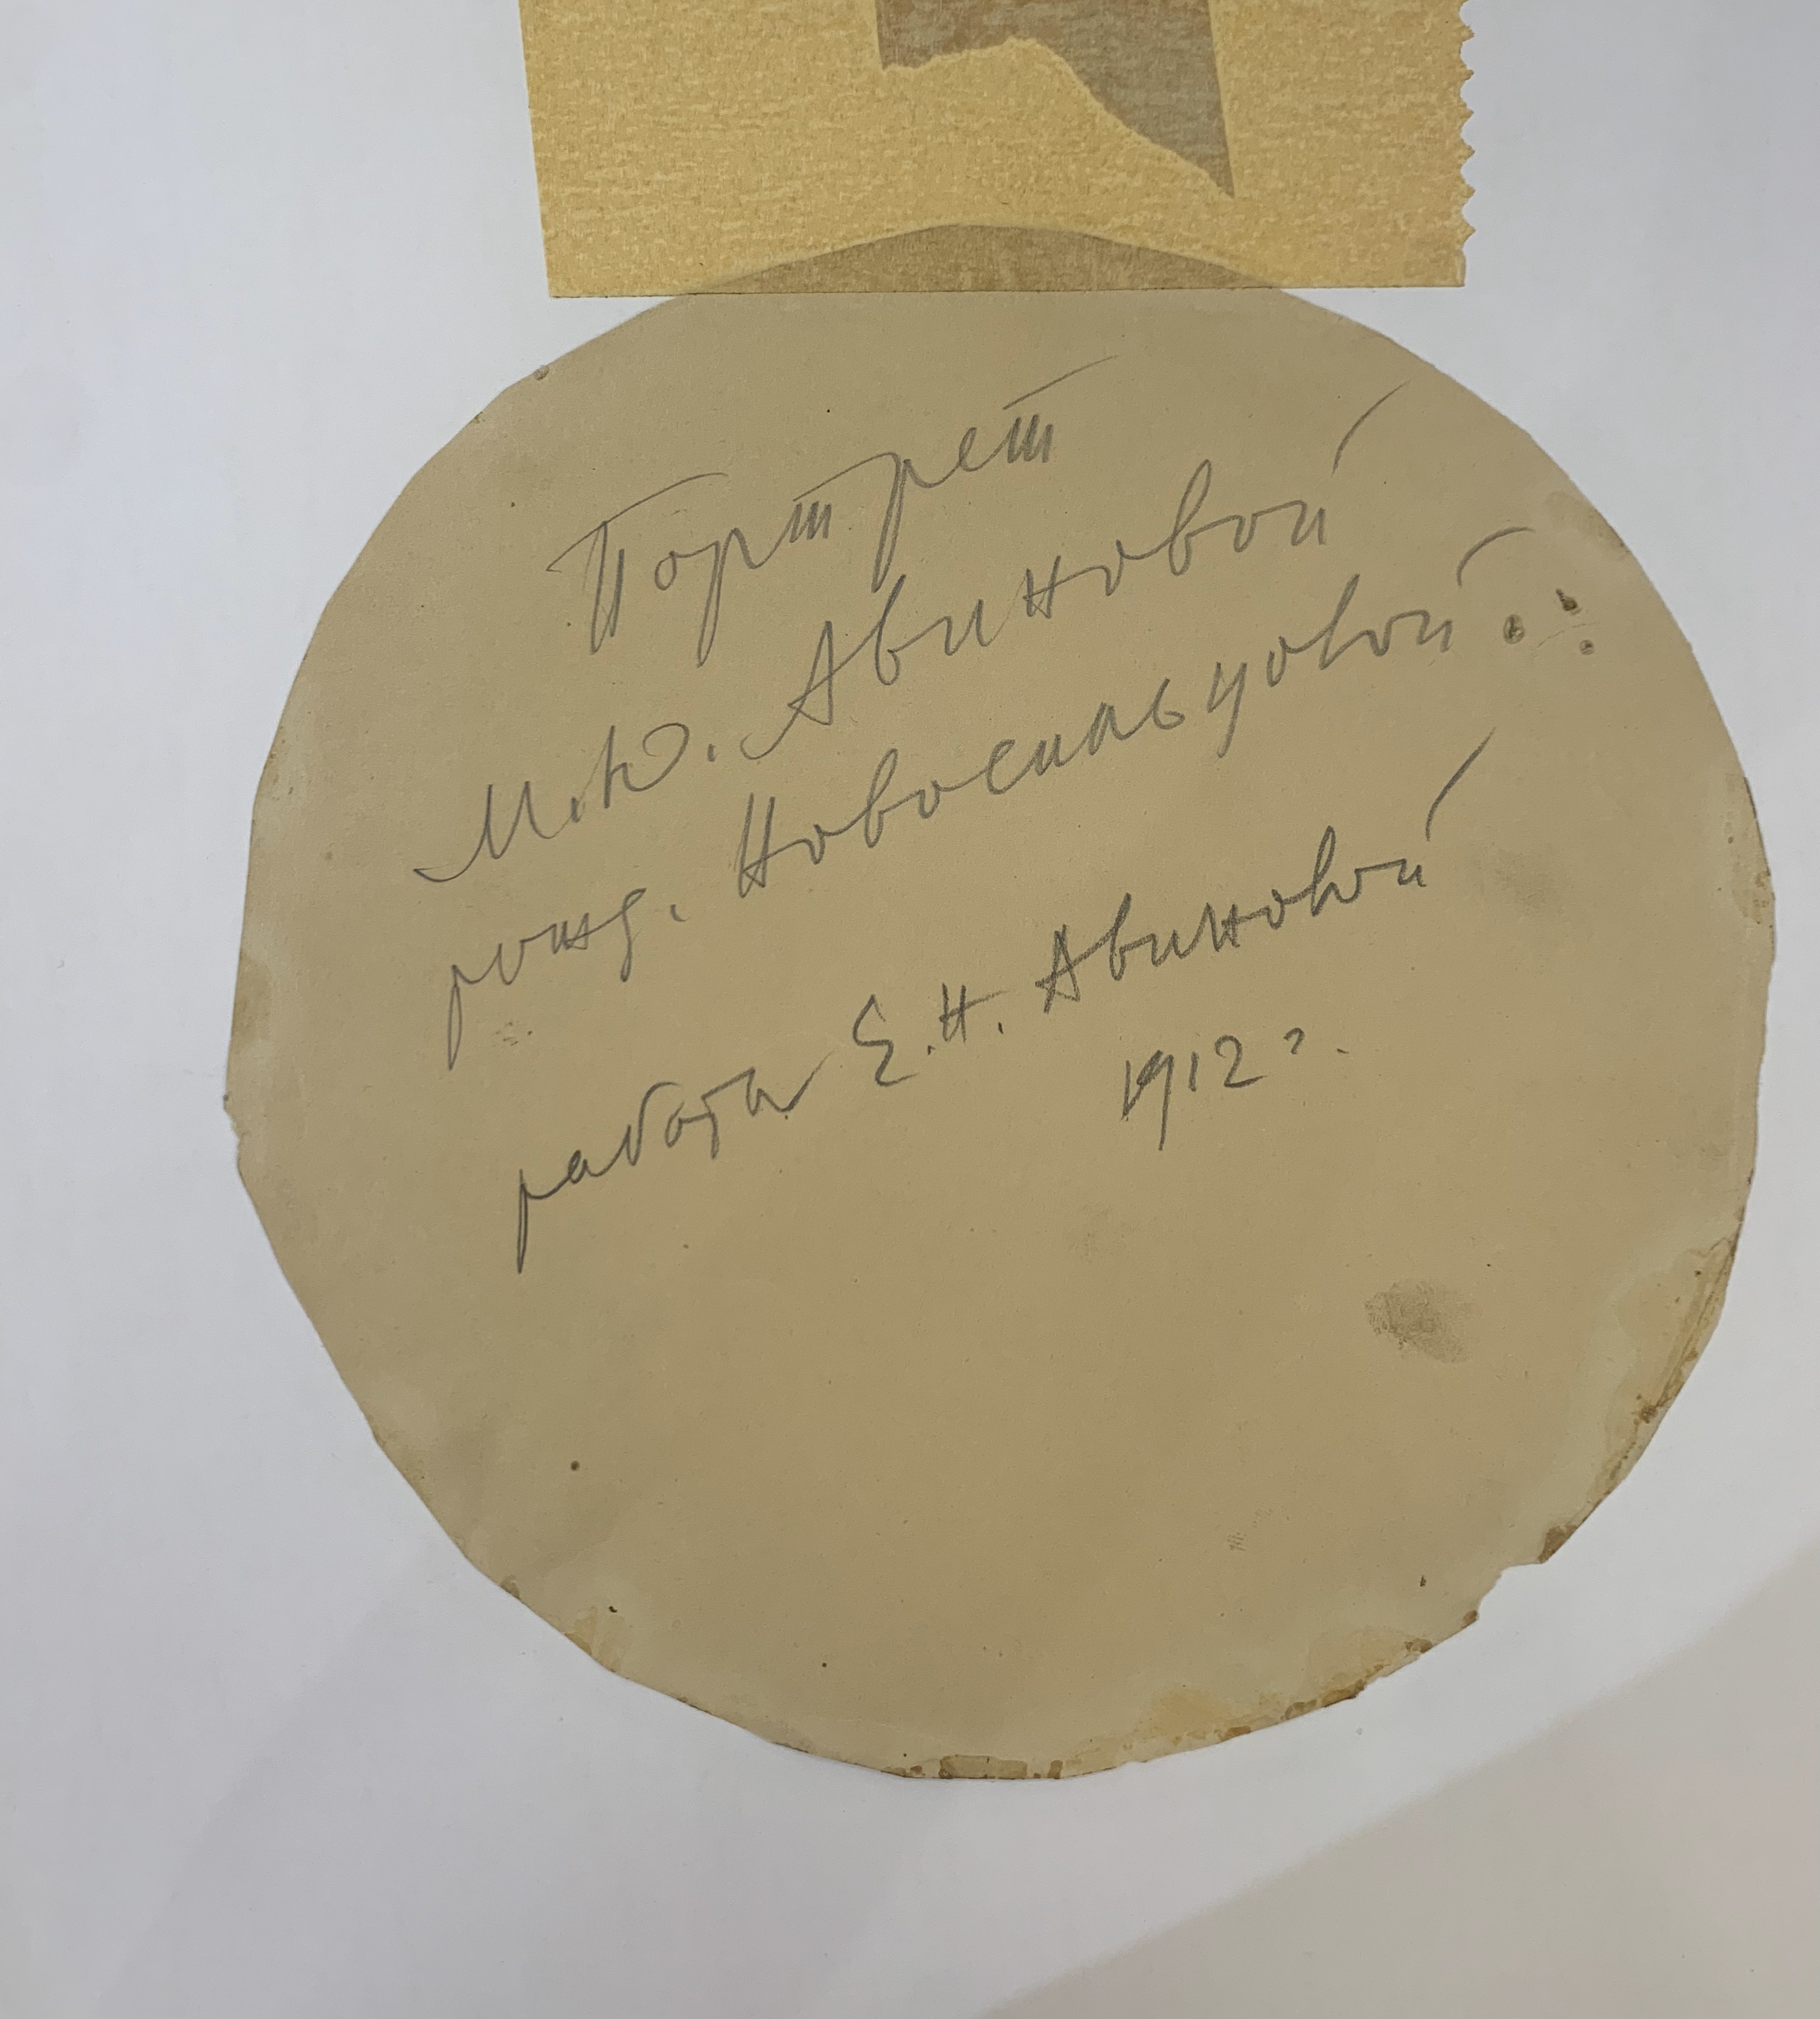 Портрет
М.Ю. Авиновой
рожд. Новосильцовой
работа Е.Н. Авиновой
1912 г.